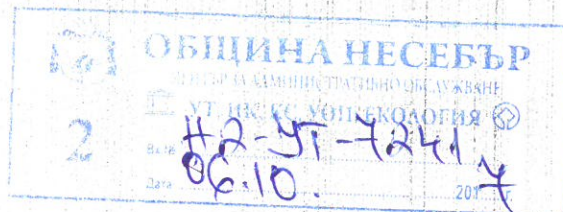 ОБЩИНА НЕСЕБЪР
ЦЕНТЪР ЗА АДМИНИСТРАТИВНО ОБСЛУЖВАНЕ
УТ, ИК, ЕС, УОП, ЕКОЛОГИЯ
2
Вх.№ Н2-УТ-7241
Дата 06.10. 2017 г.